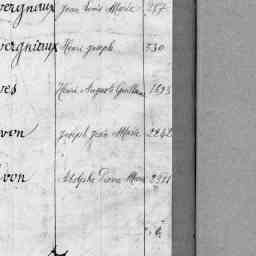 vergnaux Jean Louis Marie 287
vergniaux Henri Joseph 530
ves Henri Auguste Guillaume 1693
von Joseph Jean Marie 2242
von Adolphe Pierre Marie